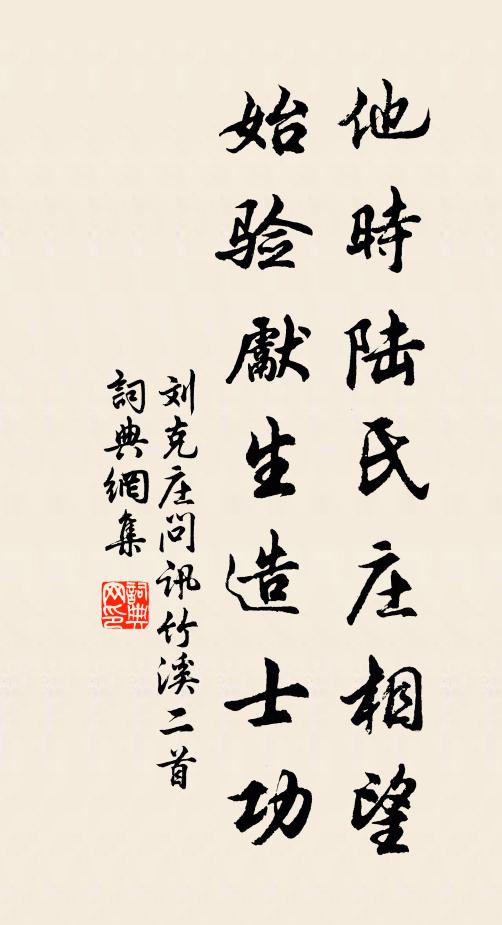 他時陆氏庄相望
始验獻生造士功
刘克庄问讯竹溪二首
詞典網集
詞典
网印